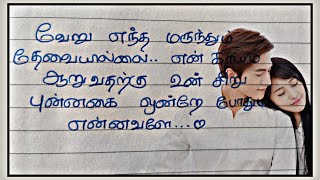 வேறு எந்த மருந்தும்
தேவையில்லை.. என் காயம்
ஆறுவதற்கு உன் சிறு
புன்னகை ஒன்றே போதும்
என்னவளே...♡